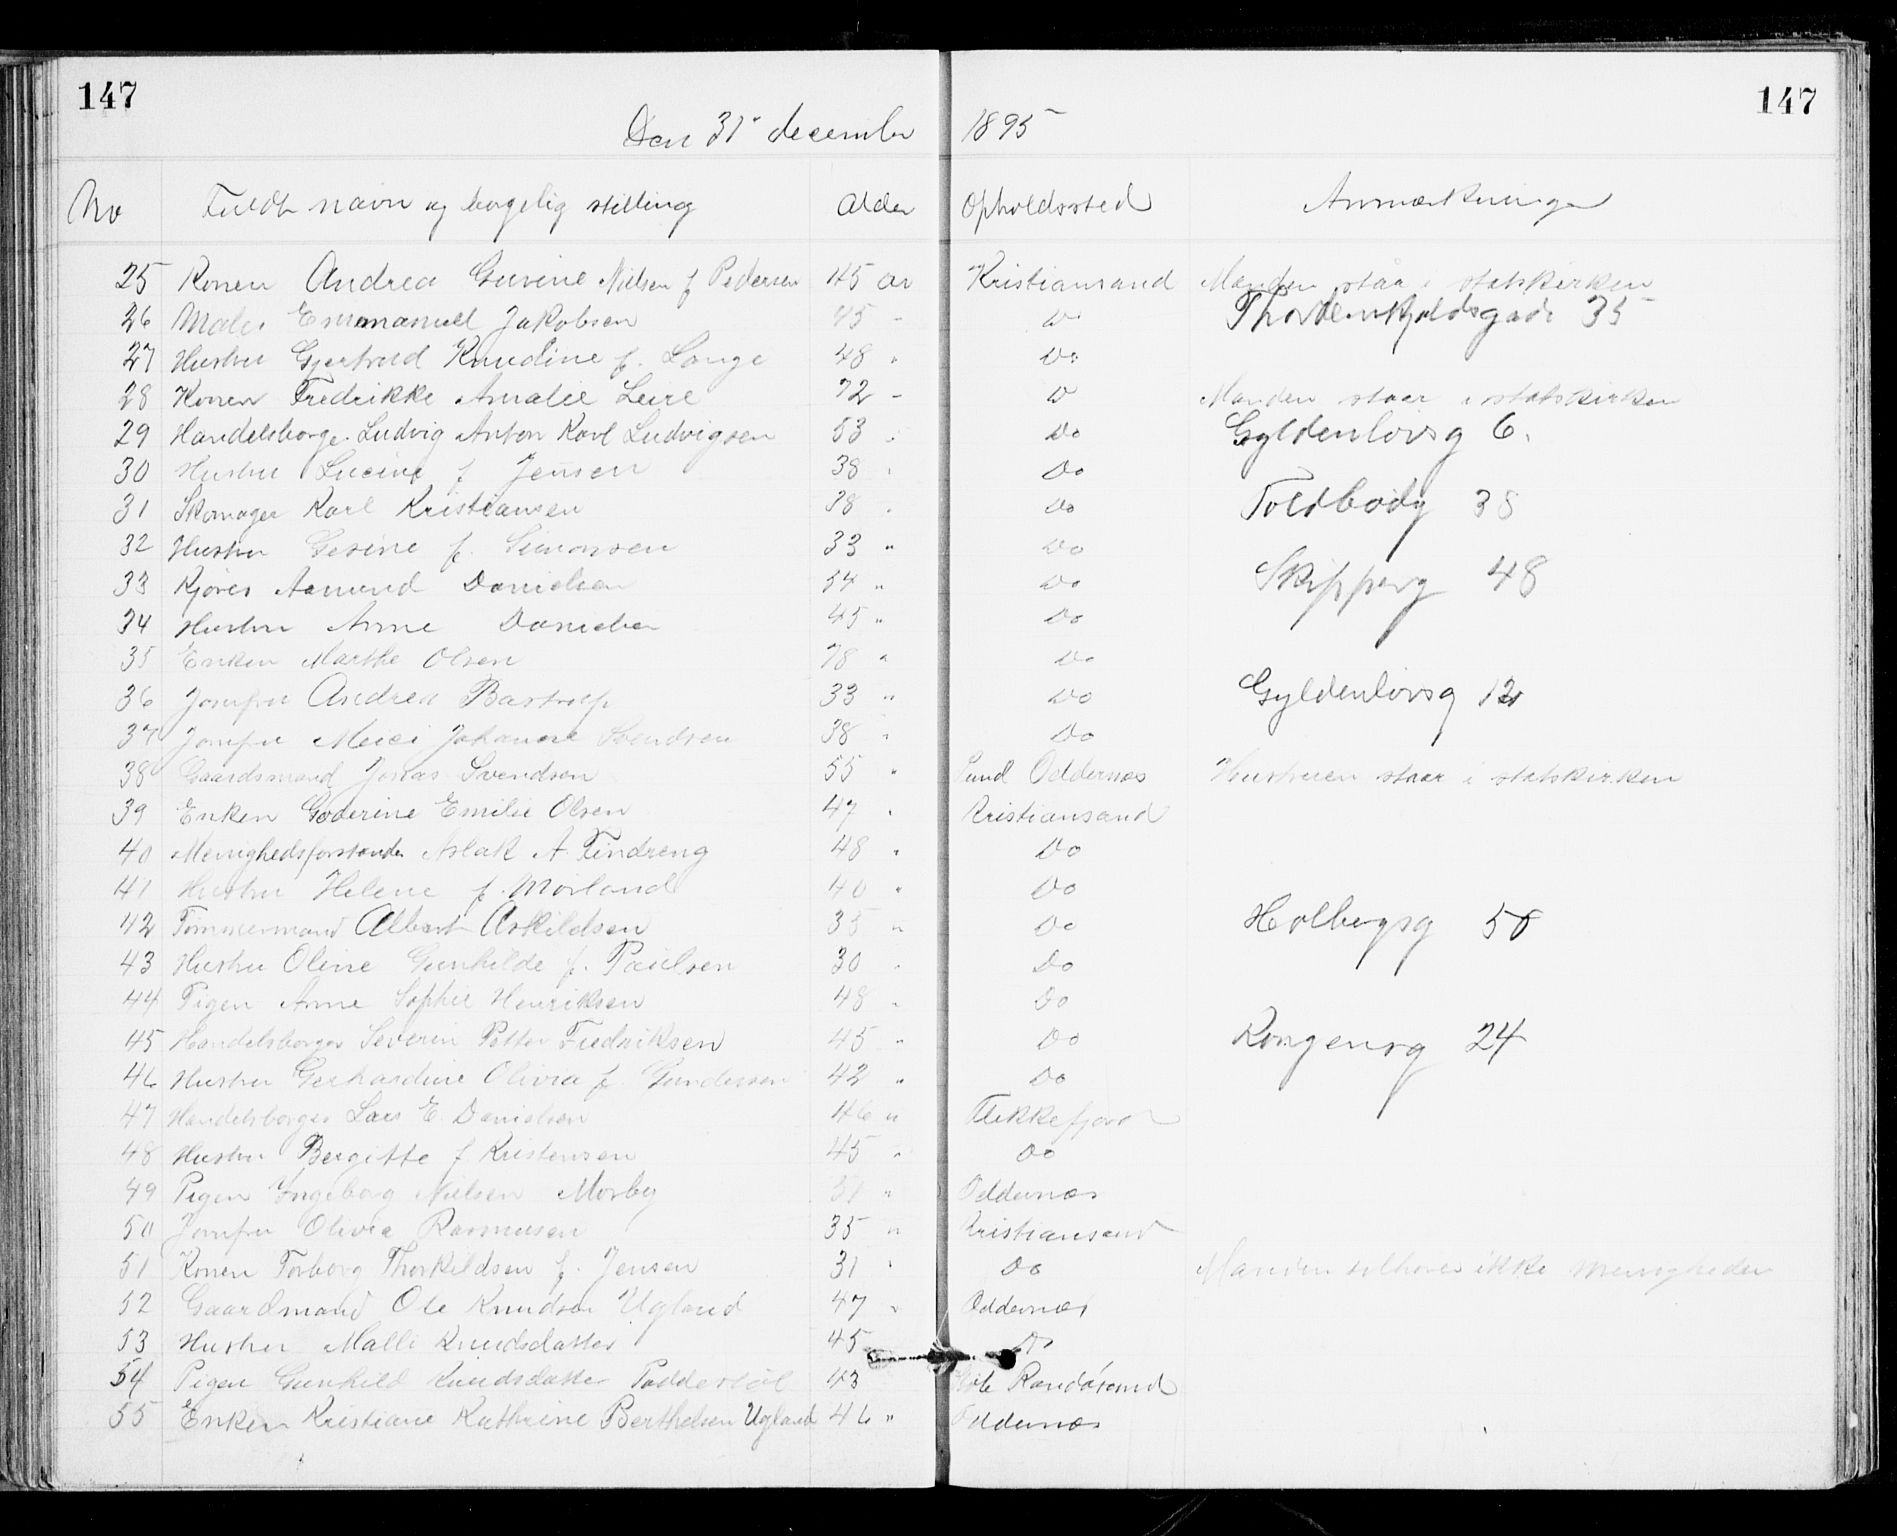 147 147
Den 31' december 1895
No Fuldt navn og borgelig stilling Alder Opholdssted Anmærkninger
25 Konen Andrea Gurine Nielsen f Pedersen 45 år Kristiansand Manden står i statskirken
26 Maler Emmanuell Jakobsen 45 - Do Thordenskjoldsgade 35
27 Hustru Gjertrud Knudine f. Lange 48 " Do
28 Konen Fredrikke Amalie Leire 72 - D Manden staar i statskirken
29 Handelsborge. Ludvig Anton Karl Ludvigsen 53 " Do Gyldenløvsg 6.
30 Hustru Lucine f Jensen 38 " Do
31 Skomager Karl Kristiansen 38 " Do Toldbodg 38
32 Hustru Gesine f. Simonsen 33 " Do
33 Kjører Aamund Danielsen 54 " Do Skipperg 48
34 Hustru Anne Danielsen 45 " Do
35 Enken Marthe Olsen 78 " Do
36 Jomfru Andrea Bastrup 33 " Do Gyldenløvsg 12
37 Jomfru Johanne Svendsen 38 " Do
38 Gaardsmand Jonas Svendsen 55 " Lund Oddernæs Hustruen staar i statskirken
39 Enken Goderine Emilie Olsen 47 " Kristiansand
40 Menighedsforstander Aslak A. Tindreng 48 " Do
41 Hustru Helene f. Mørland 40 " Do
42 Tømmermand Albert Askildsen 35 " Do Holbergsg 50
43 Hustru Oline Gunhilde f. Paulsen 30 " Do
44 Pigen Anne Sophie Henriksen 48 " Do
45 Handelsborger Severin Petter Fredriksen 45 " Do Kongensg 24
46 Hustru Gerhardine Olivia f. Gundersen 42 " Do
47 Handelsborger Lars E. Danielsen 46 " Flekkefjord
48 Hustru Bergitte f Kristensen 45 " Do
49 Pigen Ingeborg Nielsen Mosby 51 " Oddernæs
50 Jomfru Olivia Rasmusen 35 " Kristiansand
51 Konen Torborg Thorkildsen f. Jensen 31 " Do Manden tilhører ikke menigheden
52 Gaardmand Ole Knudsen Ugland 47 " Oddernæs
53 Hustru Malli Knudsdatter 45 Do
54 Pigen Gunhild Knudsdatter 43 Randøsund
55 Enken Kristiane Kathrine Berthelsen Ugland 46 " Oddernæs